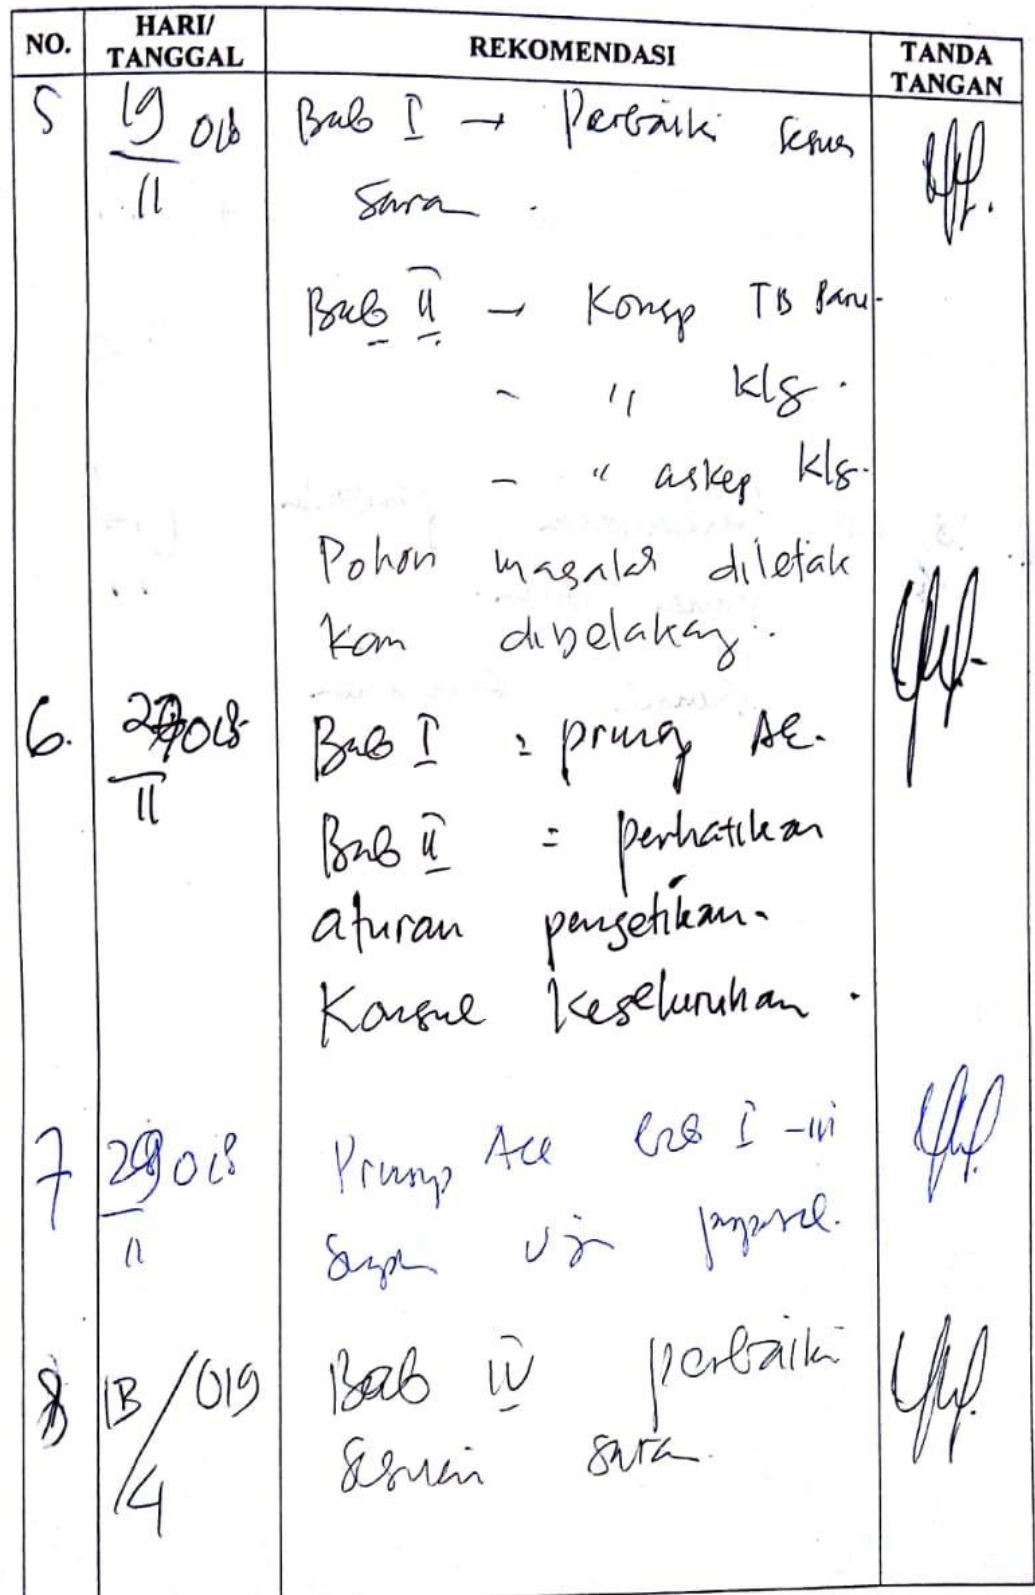 NO. HARI/ TANGGAL REKOMENDASI TANDA TANGAN
5 19/11 018 Bab I → Perbaiki sesuai
Saran .
Bab II → Konsep TB Paru-
- " Klg .
- " askep Klg.
Pohon masalah diletak
kan dibelakang.
6. 27/11 018 Bab I = prinsip Acc.
Bab II = perhatikan
aturan pengetikan.
Konsul keseluruhan .
7 29/11 018 Prinsip Acc bab I - III
Siapkan Uji proposal.
8 13/4 019 Bab IV perbaiki
sesuai saran.